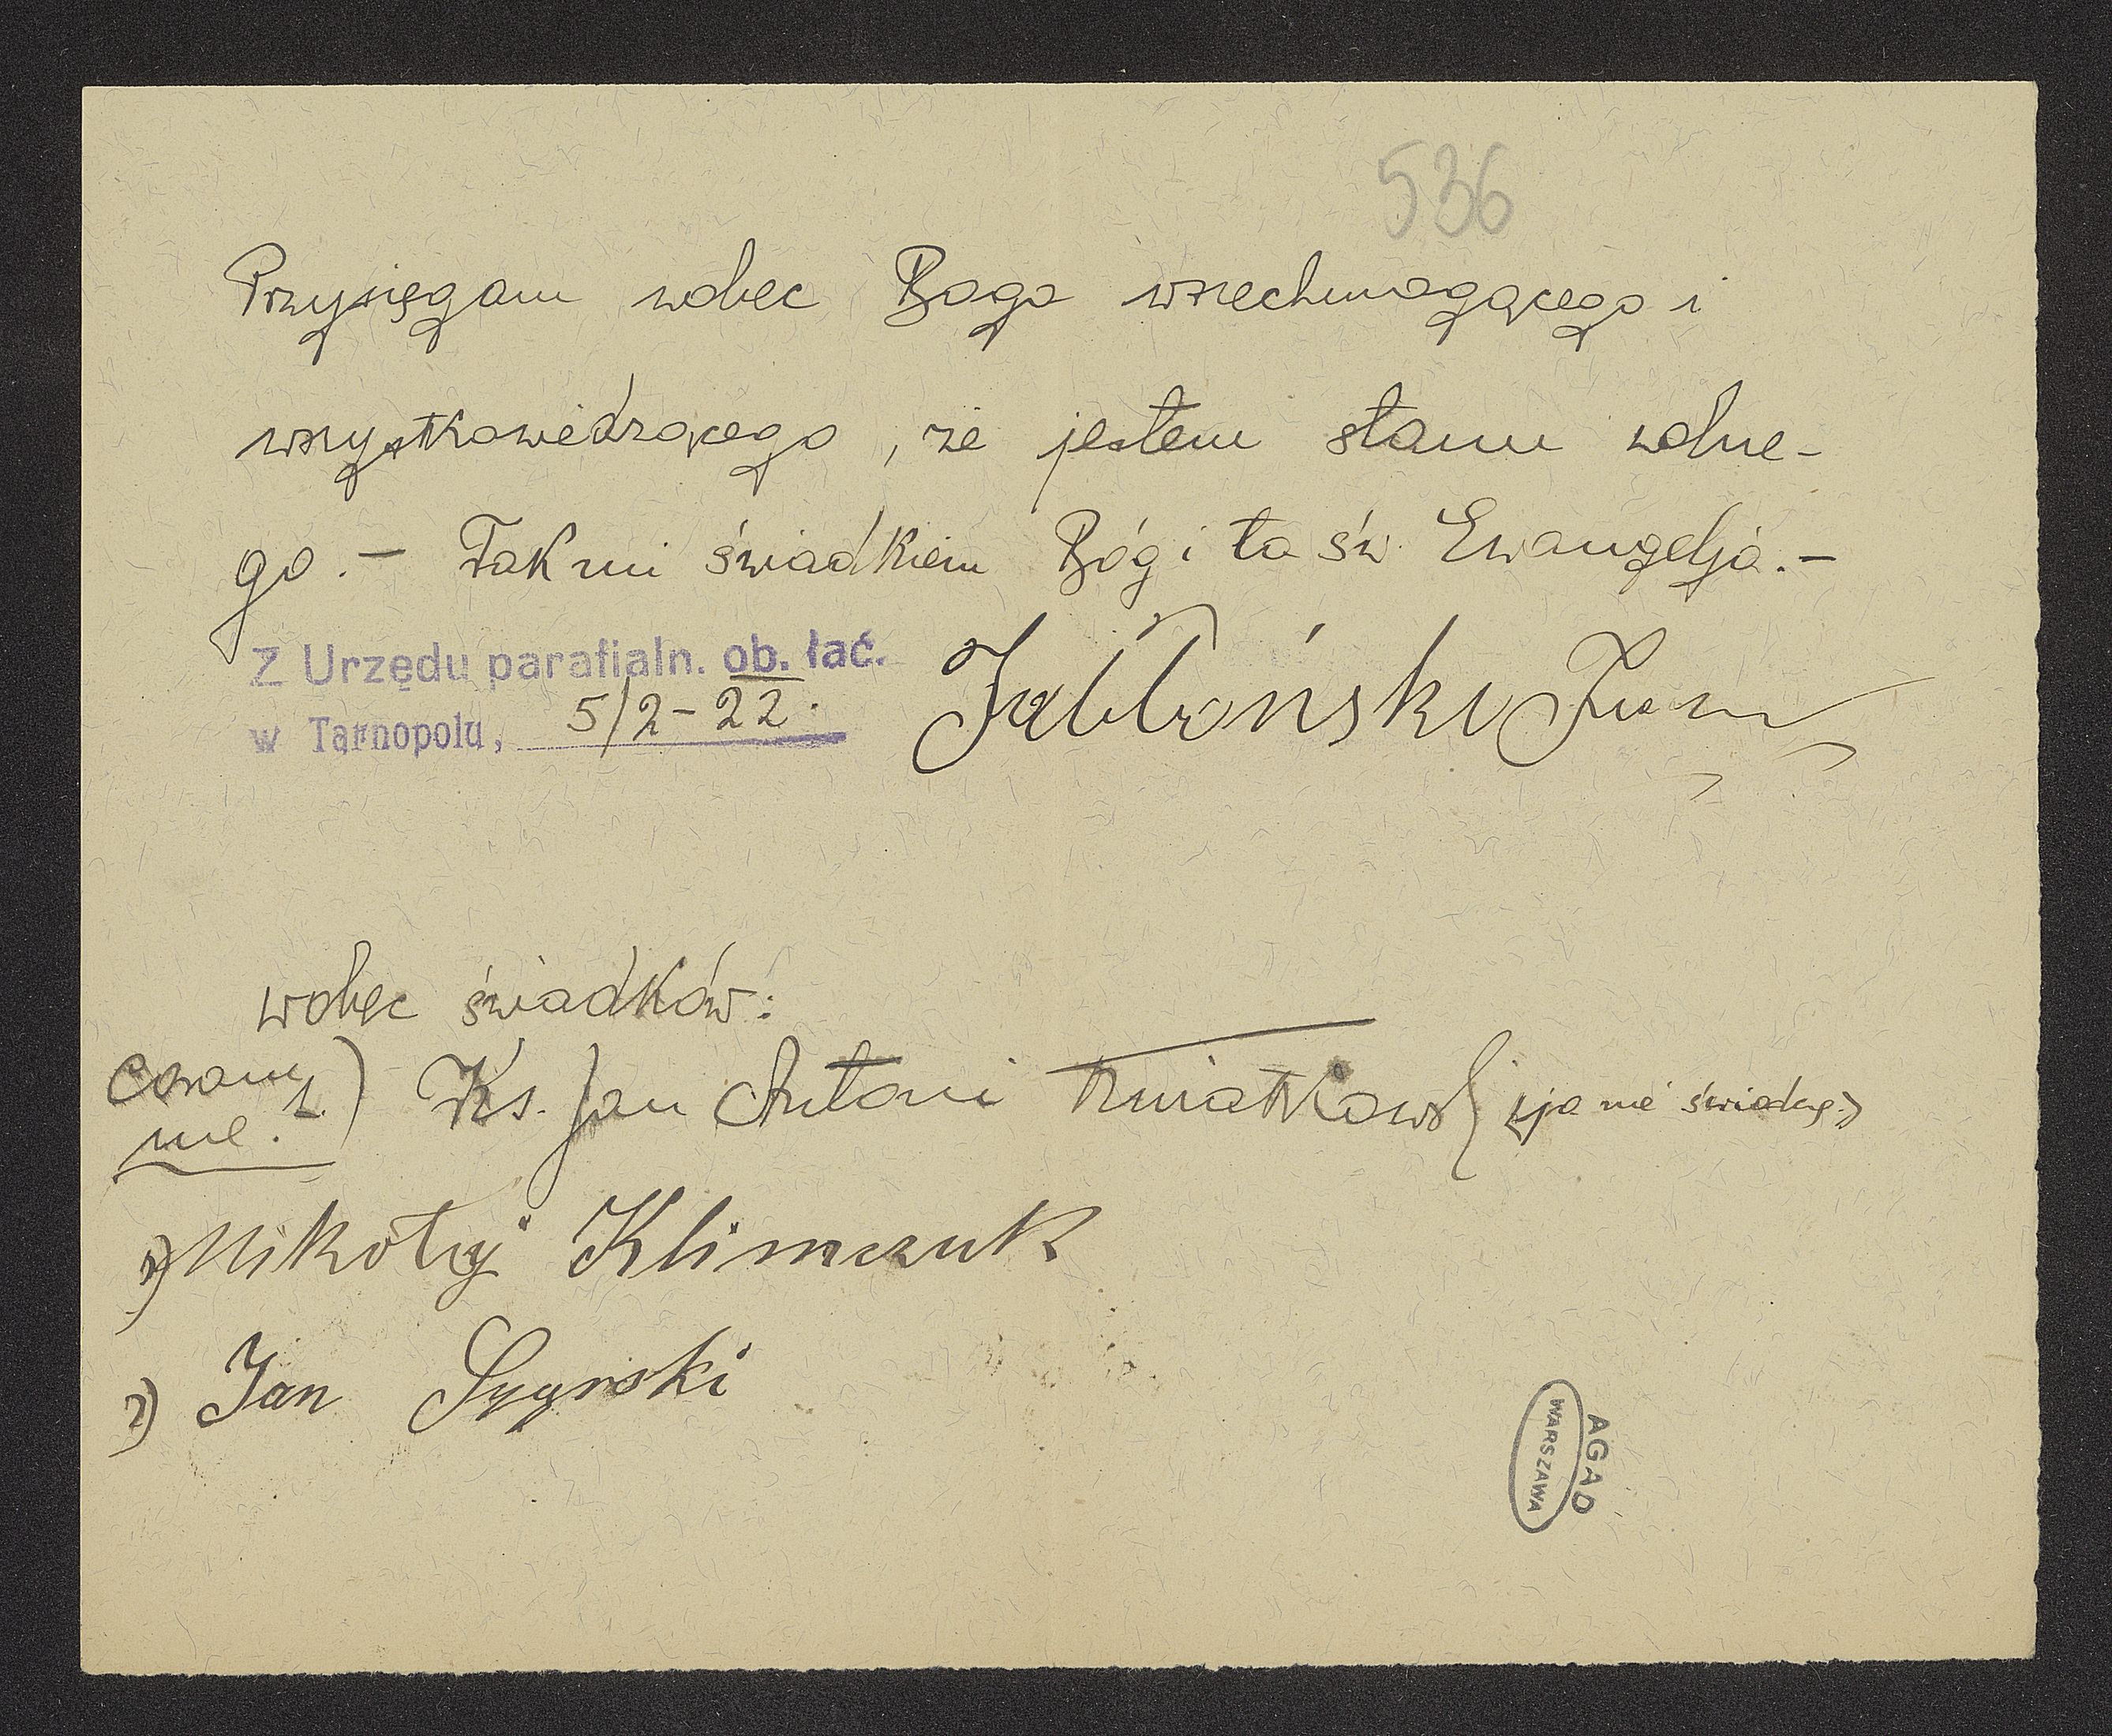 536
Przysięgam wobec Boga wszechmogącego i
wszystkowiedzącego, że jestem stanu wolne-
go. - Tak mi świadkiem Bóg i ta św. Ewangelja. -
Z Urzędu parafialn. ob. łać.
w Tarnopolu, 5/2-22.
Jabłoński
wobec świadków:
coram
me. 1.) Ks. Jan Antoni Kwiatkowski
Mikołaj Klimczuk
2) Jan
AGAD
WARSZAWA